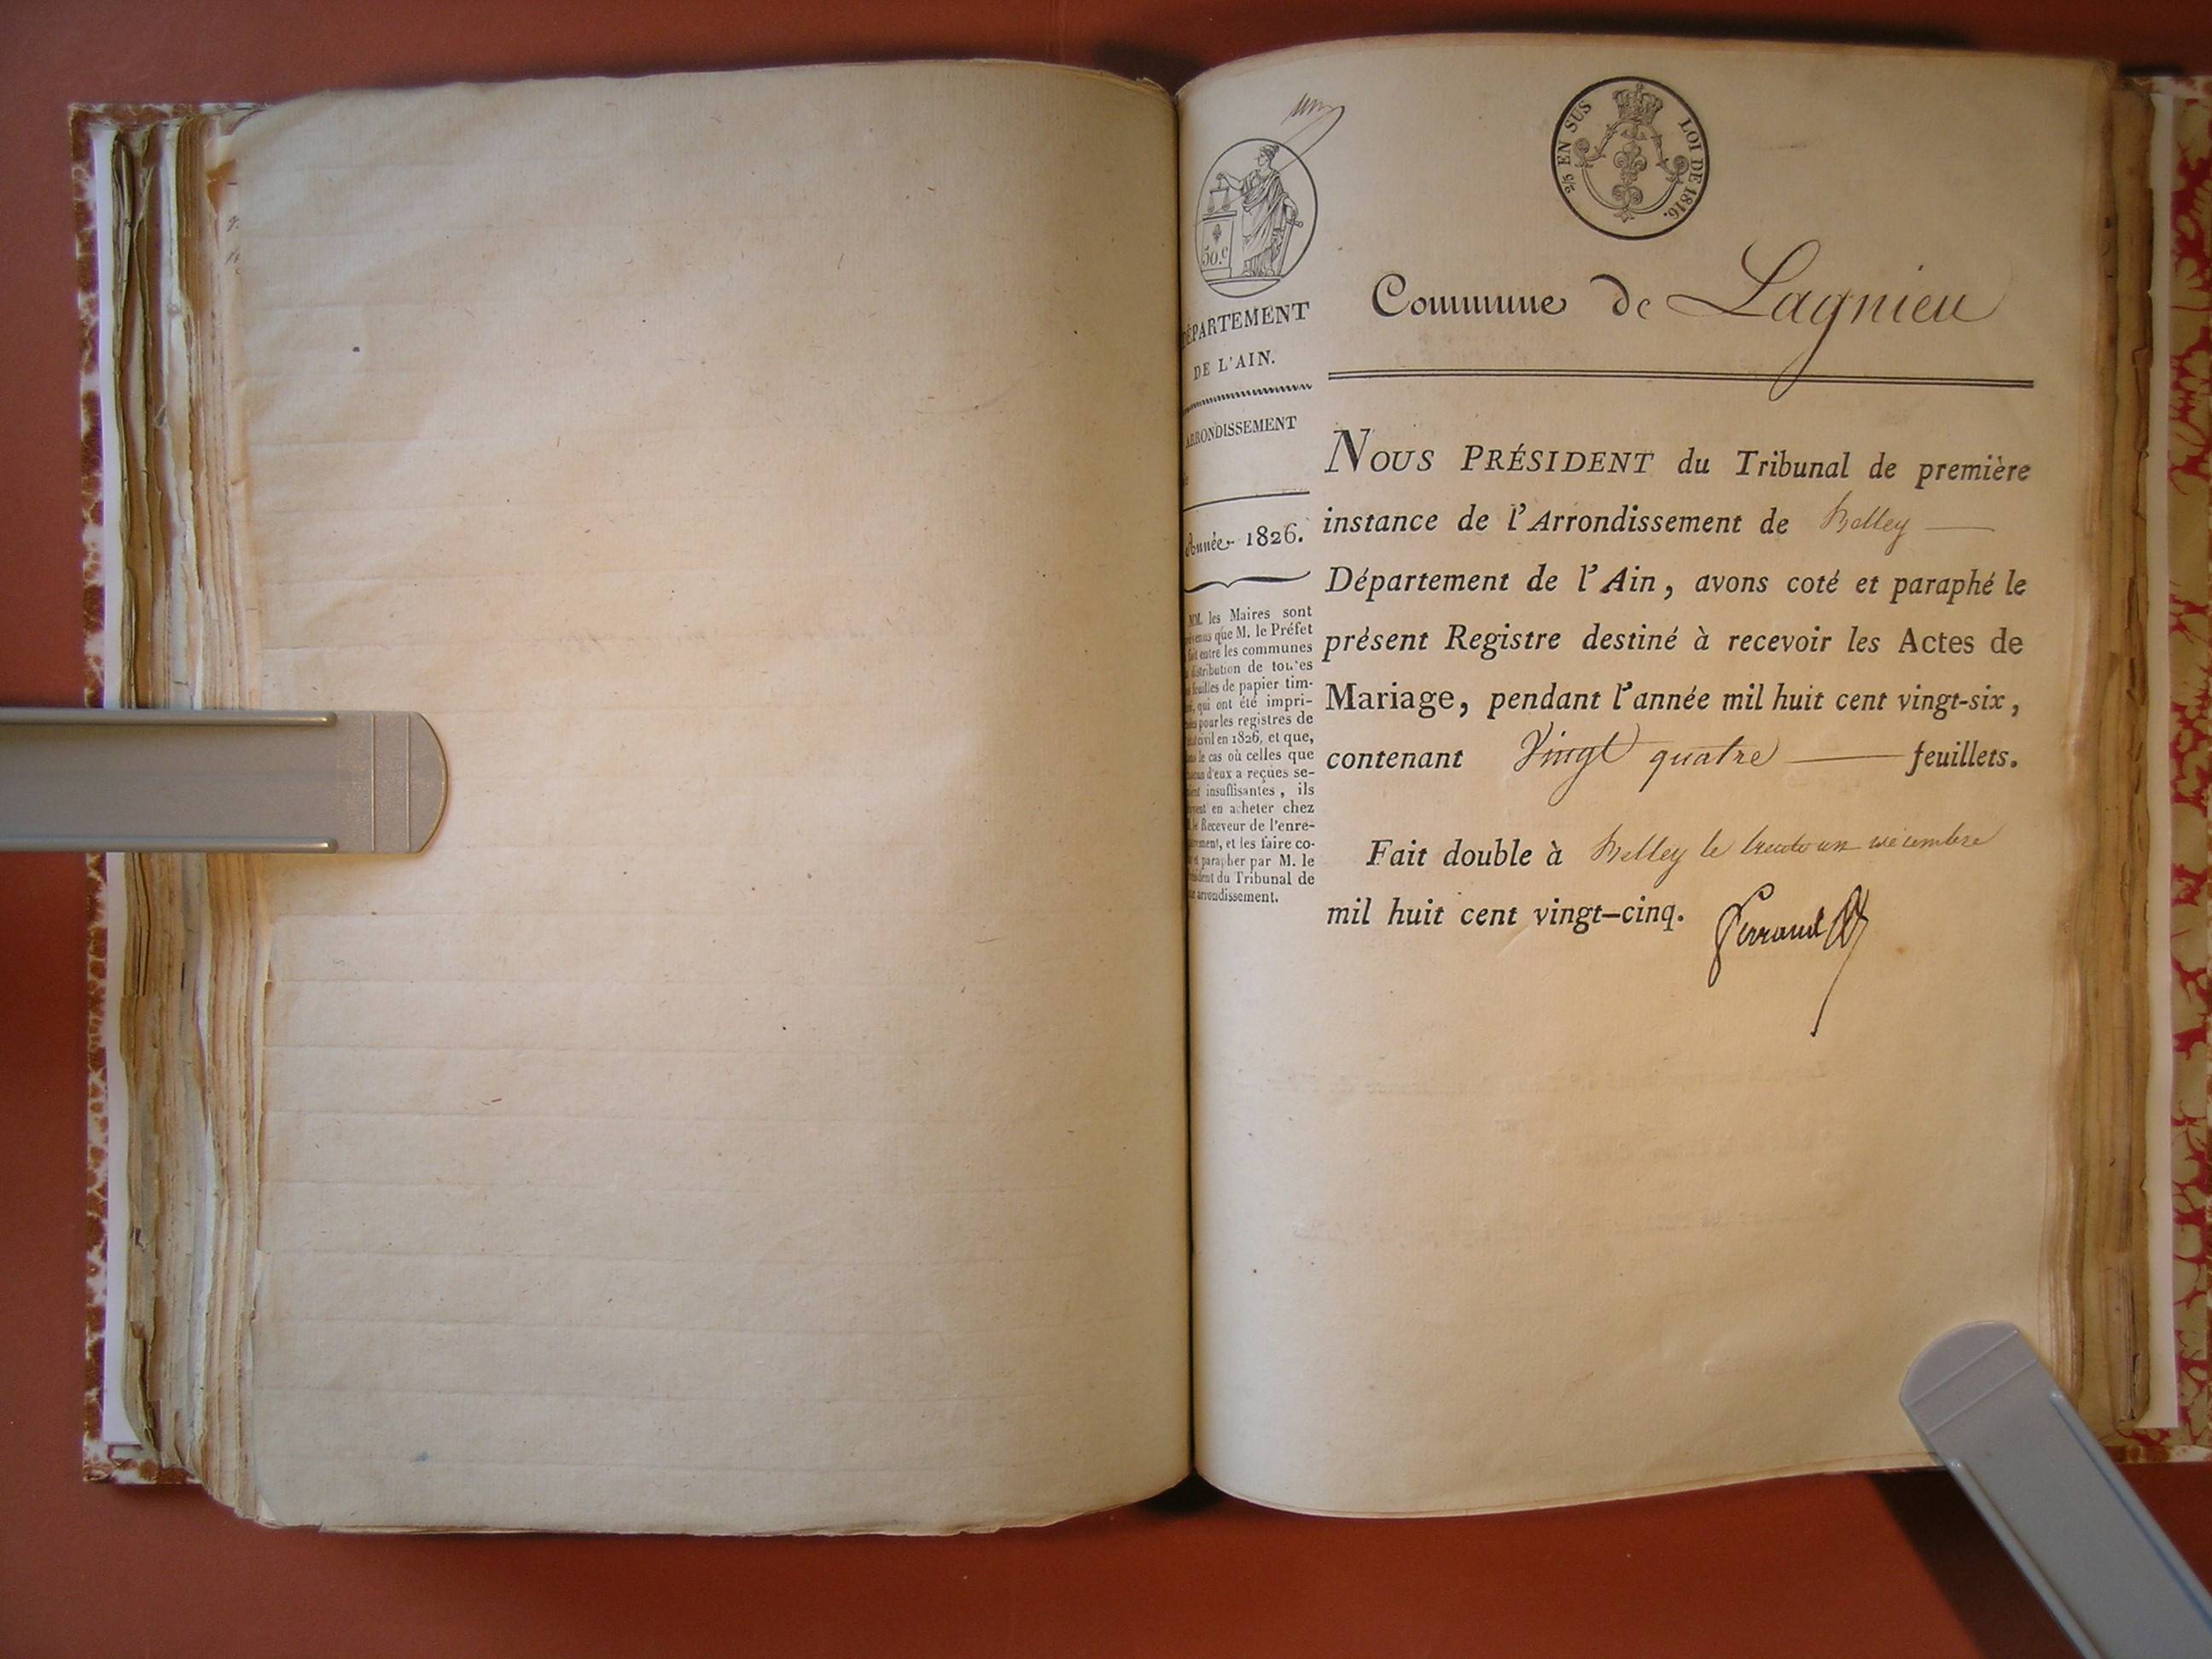 un
2/5 EN SUS LOI DE 1816.
50.c
DÉPARTEMENT
DE L'AIN.
ARRONDISSEMENT
Année 1826.
MM. les Maires sont
que M. le Préfet
entre les communes
distribution de toutes
feuilles de papier tim-
qui ont été impri-
pour les registres de
civil en 1826, et que,
le cas où celles que
d'eux a reçues se-
insuffisantes, ils
en acheter chez
Receveur de l'enre-
et les faire co-
parapher par M. le
du Tribunal de
arrondissement.
Commune de Lagnieu
NOUS PRÉSIDENT du Tribunal de première
instance de l'Arrondissement de Belley
Département de l'Ain, avons coté et paraphé le
présent Registre destiné à recevoir les Actes de
Mariage, pendant l'année mil huit cent vingt-six,
contenant Vingt quatre feuillets.
Fait double à Belley le trente un décembre
mil huit cent vingt-cinq.